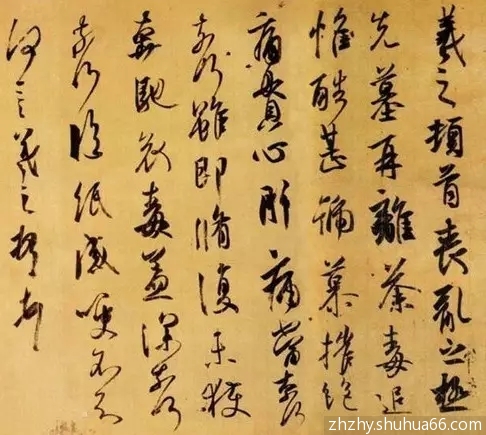 羲之頓首喪亂之極
先墓再離荼毒追
惟酷甚號慕摧絕
痛貫心肝痛當奈何
奈何雖即脩復未獲
奔馳哀毒益深奈何
奈何臨紙感哽不知
何言羲之頓首
zhzhy.shuhua66.com